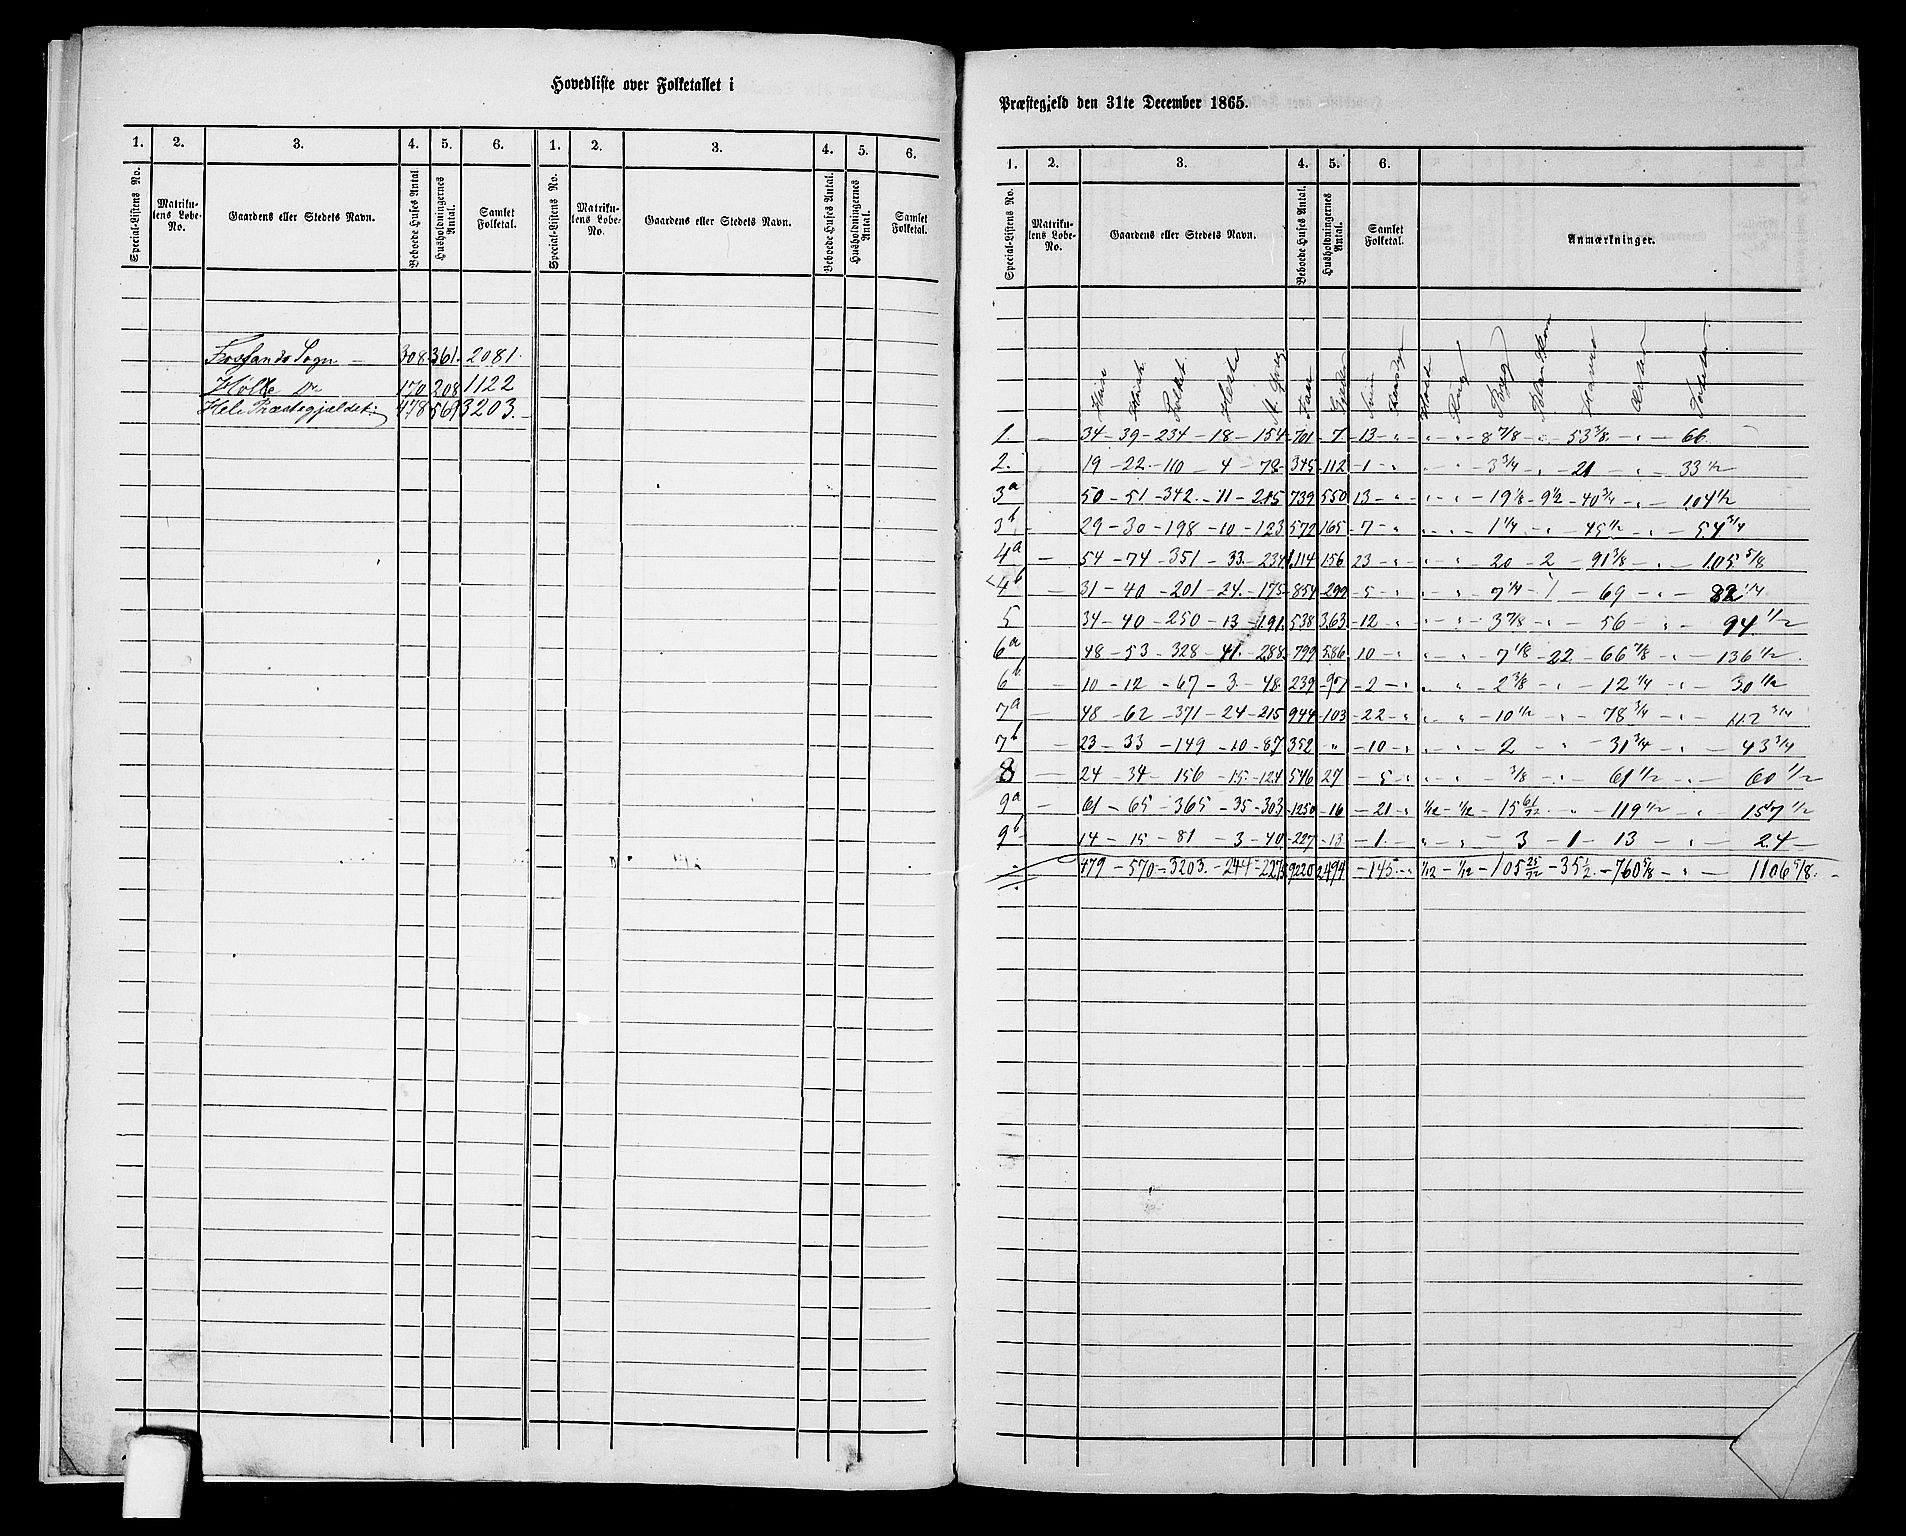 Hovedliste over Folketallet i
1. 2. 3. 4. 5. 6. 1. 2. 3. 4. 5. 6.
Special-Listens No. Matrikulens Løbe-No. Gaardens eller Stedets Navn. Beboede Huses Antal Husholdningernes Antal. Samlet Folketal. Special-Listens No. Matrikulens Løbe-No. Gaardens eller Stedets Navn. Beboede Huses Antal. Husholdningernes Antal. Samlet Folketal.
Fossands Sogn — 308. 361. 2081.
Holle Do 170 208 1122
Hele Præstegjældet: 478 569 3203.
Præstegjeld den 31te December 1865.
1. 2. 3. 4. 5. 6.
Special-Listens No. Matrikulens Løbe-No. Gaardens eller Stedets Navn. Beboede Huses Antal. Husholdningernes Antal. Samlet Folketal. Anmærkninger.
Huse Hush Folket Heste St. Qvæg Faar Gjeder Sviin Rensdyr Hvede Rug Byg Blandkorn Havre Erter Poteter
1. — 34 — 39 — 234 — 18 — 154 — 701 — 7 — 13 — " — " — " — 8 7/8 — " — 53 3/8 — " — 66.
2. 19 — 22 — 110 — 4 — 78 — 345 — 112 — 1 — " — " — " — 3 3/4 — " — 21 — " — 33 1/2
3a 50 — 51 — 342. — 11 — 215 739 550 13 — " — " — " — 19 1/8 — 9 1/2 — 40 3/4 — " — 104 1/2
3b — 29 — 30 — 198 — 10 — 123 572 165 — 7 — " — " — " — 1 1/4 — " — 45 1/2 — " — 54 3/4
4a — 54 — 74 — 351 — 33. — 234 1.114 156 23 — " — " — " — 20 — 2 — 91 3/8 — " — 105 5/8
4b 31 — 40 — 201 — 24. — 175 — 854 — 299 — 5 — " — " — " — 7 1/4 — 1 — 69 — " — 82 1/4
5 34 — 40 — 250 — 13 — 191. 538 363. — 12 — " — " — " — 3 7/8 — " — 56 — " — 94 1/2
6a 48 — 53 — 328 — 41. — 288. 799 586 — 10 — " — " — " — 7 1/8 — 22 — 66 7/8 — " — 136 1/2.
6b — 10 — 12 — 67 — 3. — 48. 239 — 2 — " — " — " — 2 3/8 — " — 12 1/4 — " — 30 1/2
7a — 48 — 62 — 371 — 24 — 215 944 — 103 — 22 — " — " — " — 10 1/2 — " — 78 3/4 — " — 112 3/4
7b — 23 — 33 — 149 — 10 — 87 352 — " — 10 — " — " — " — 2 — " — 31 3/4 — " — 43 3/4
8 — 24 — 34 — 156 — 15. — 124 546 27 — 5 — " — " — " — 3/8 — " — 61 1/2 — " — 60 1/2
9a — 61 — 65 — 365 — 35 — 303 — 1250 — 16 — 21 — " 1/12 — 1/12 — 15 61/92 — " — 119 1/2 — " — 157 1/2
9b 14 — 15 — 81 — 3 — 40 — 227 — 13 — 1. — " — " — " — 3 — 1 — 13 — " — 24 —
479 — 570 — 3203. — 244 — 2275 9220 2494 — 145 — " 1/12 — 1/12 — 105 25/92 — 35 1/2 — 760 5/8 — " — 1106 5/8. —